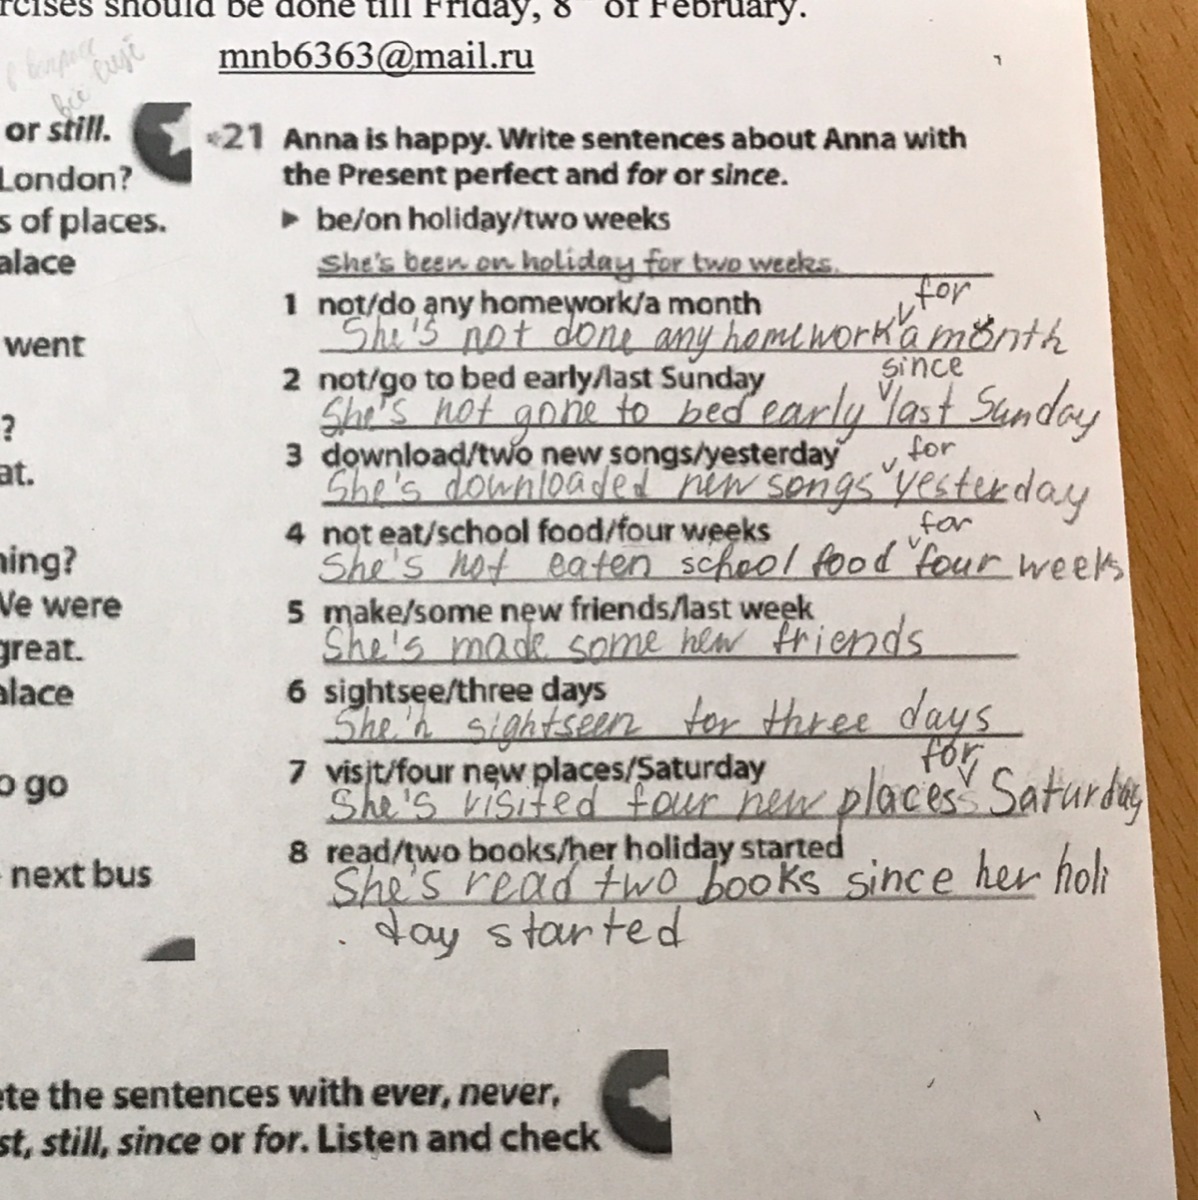 rcises should be done till Friday, 8 of February.
mnb6363@mail.ru
все ещё
or still.
London?
s of places.
alace
went
?
at.
ning?
We were
great.
alace
o go
next bus
21 Anna is happy. Write sentences about Anna with
the Present perfect and for or since.
► be/on holiday/two weeks
She's been on holiday for two weeks.
1 not/do any homework/a month
for
She's not done any homework a month
2 not/go to bed early/last Sunday
since
She's not gone to bed early last Sunday
3 download/two new songs/yesterday
for
She's downloaded new songs yesterday
4 not eat/school food/four weeks
for
She's not eaten school food four weeks
5 make/some new friends/last week
She's made some new friends
6 sightsee/three days
She'h sightseen for three days
7 visit/four new places/Saturday
for
She's visited four new places Saturday
8 read/two books/her holiday started
She's read two books since her holi
day started
ete the sentences with ever, never,
st, still, since or for. Listen and check